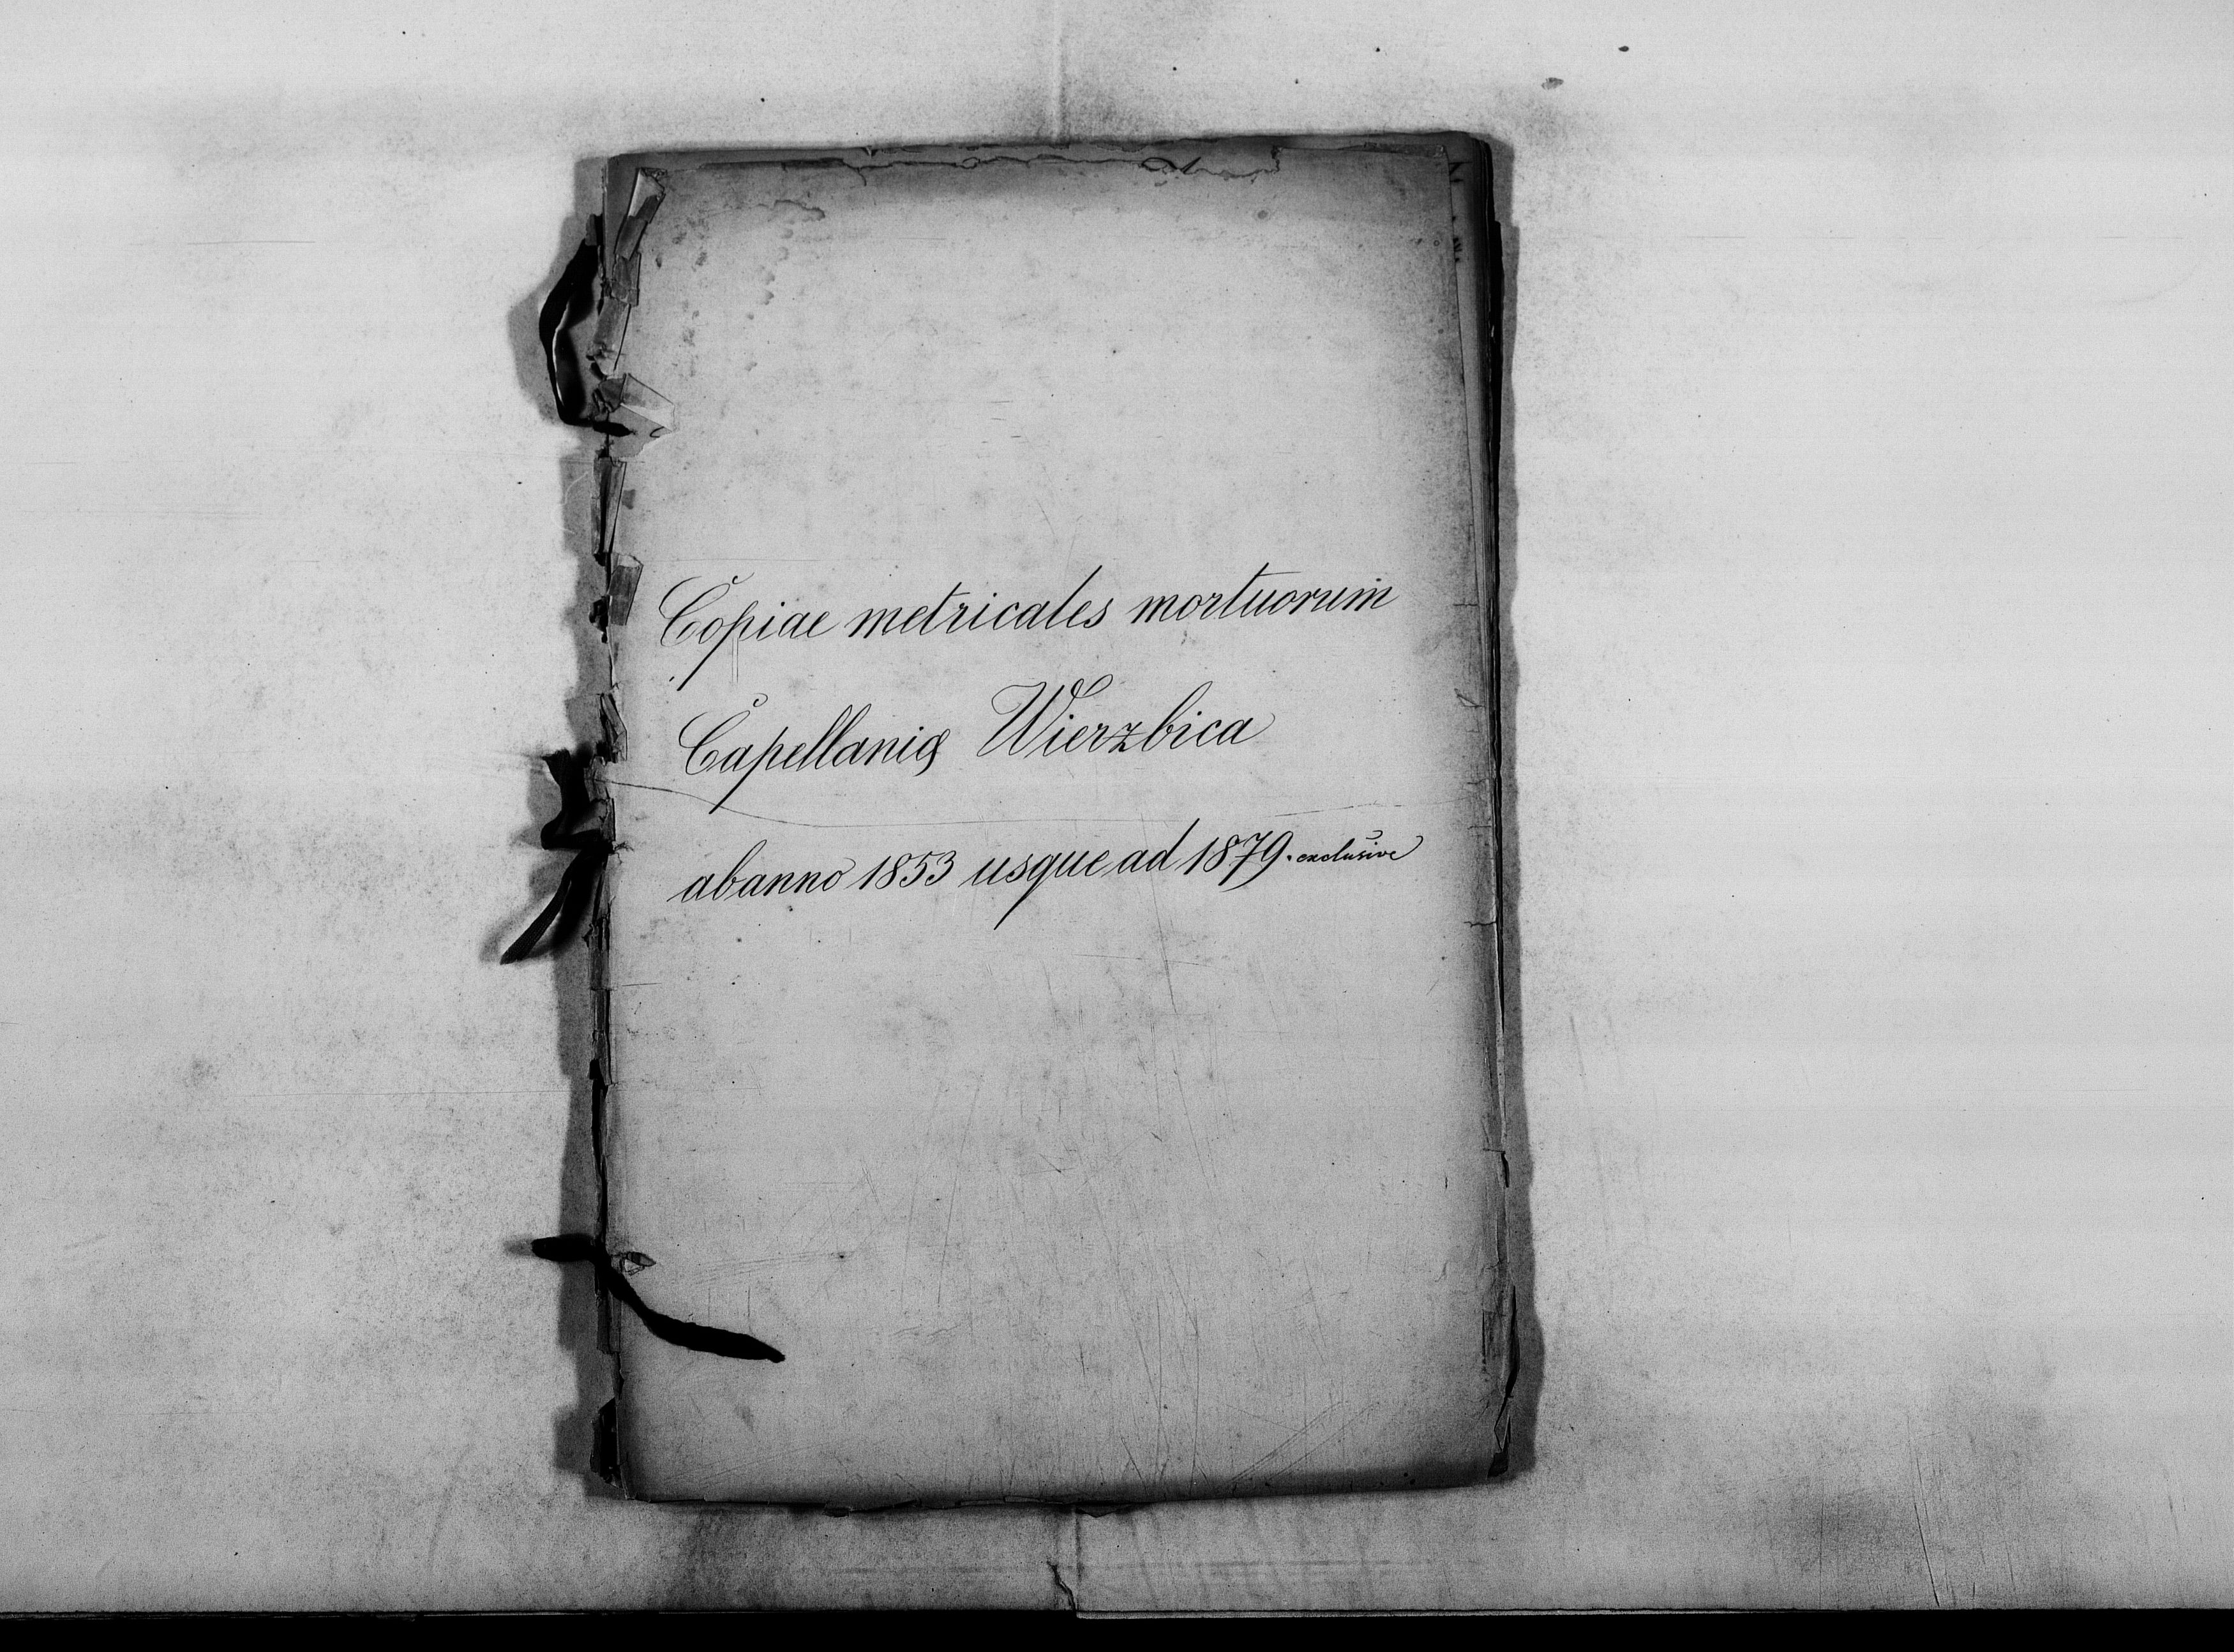 Copiae metricales mortuorum
Capellaniæ Wierzbica
ab anno 1853 usque ad 1879. exclusive